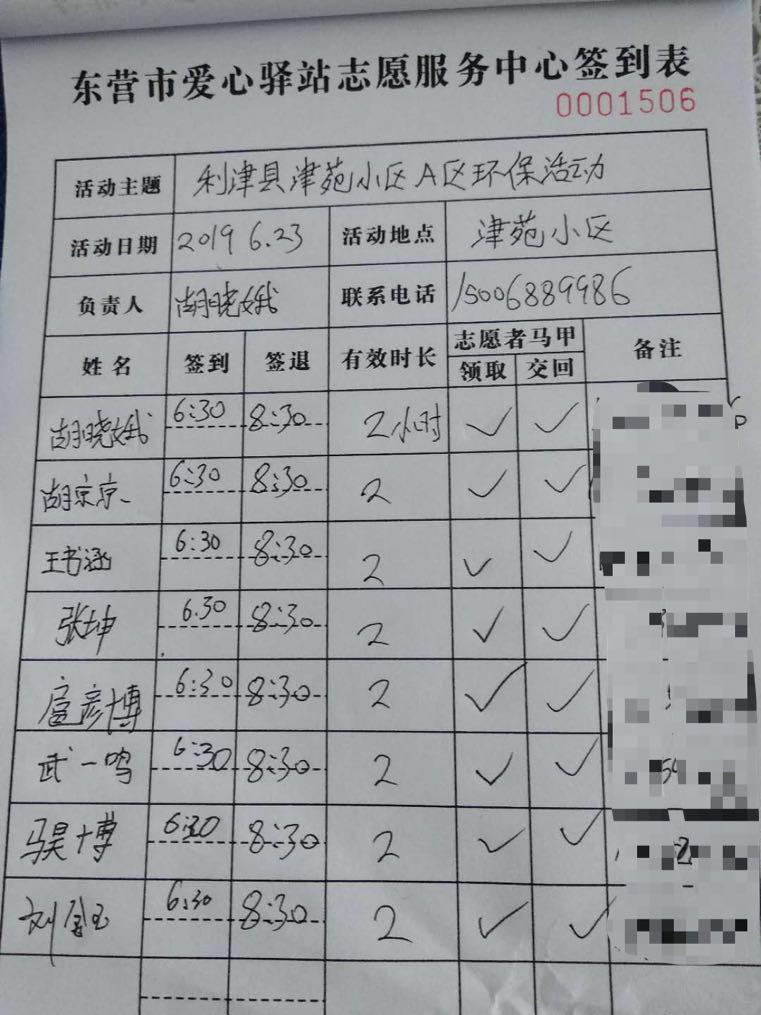 东营市爱心驿站志愿服务中心签到表
0001506
活动主题 利津县津苑小区A区环保活动
活动日期 2019 6.23 活动地点 津苑小区
负责人 胡晓娥 联系电话 15006889986
姓名 签到 签退 有效时长 志愿者马甲 备注
领取 交回
胡晓娥 6:30 8:30 2小时 ✓ ✓
胡京京 6:30 8:30 2 ✓ ✓
王书涵 6:30 8:30 2 ✓ ✓
张坤 6.30 8:30 2 ✓ ✓
扈彦博 6:30 8:30 2 ✓ ✓
武一鸣 6:30 8:30 2 ✓ ✓
马昊博 6:30 8:30 2 ✓ ✓
刘金玉 6:30 8:30 2 ✓ ✓